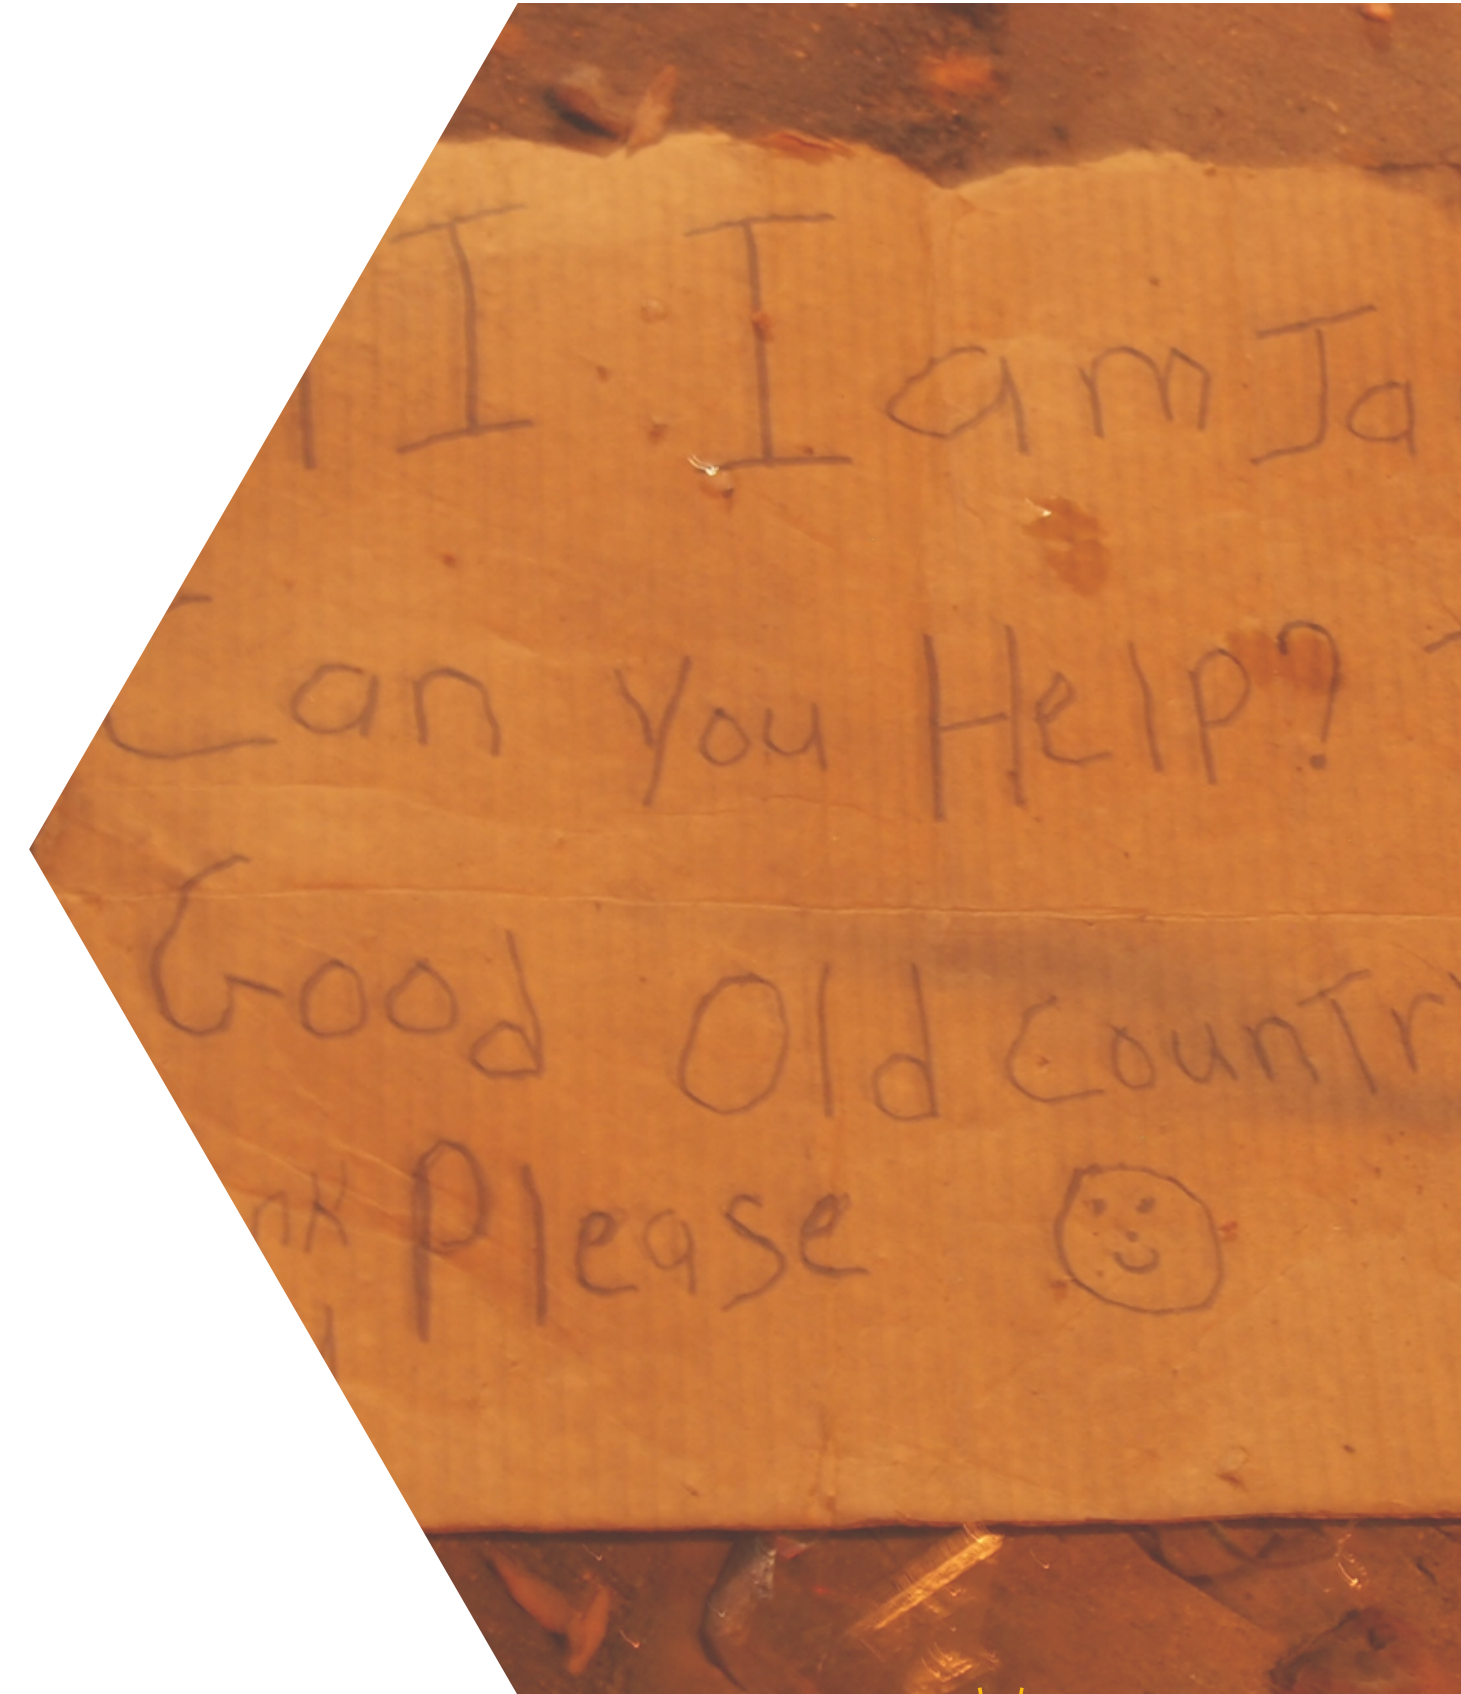 I. I am Ja
Can you Help?
Good Old Countr
nk Please